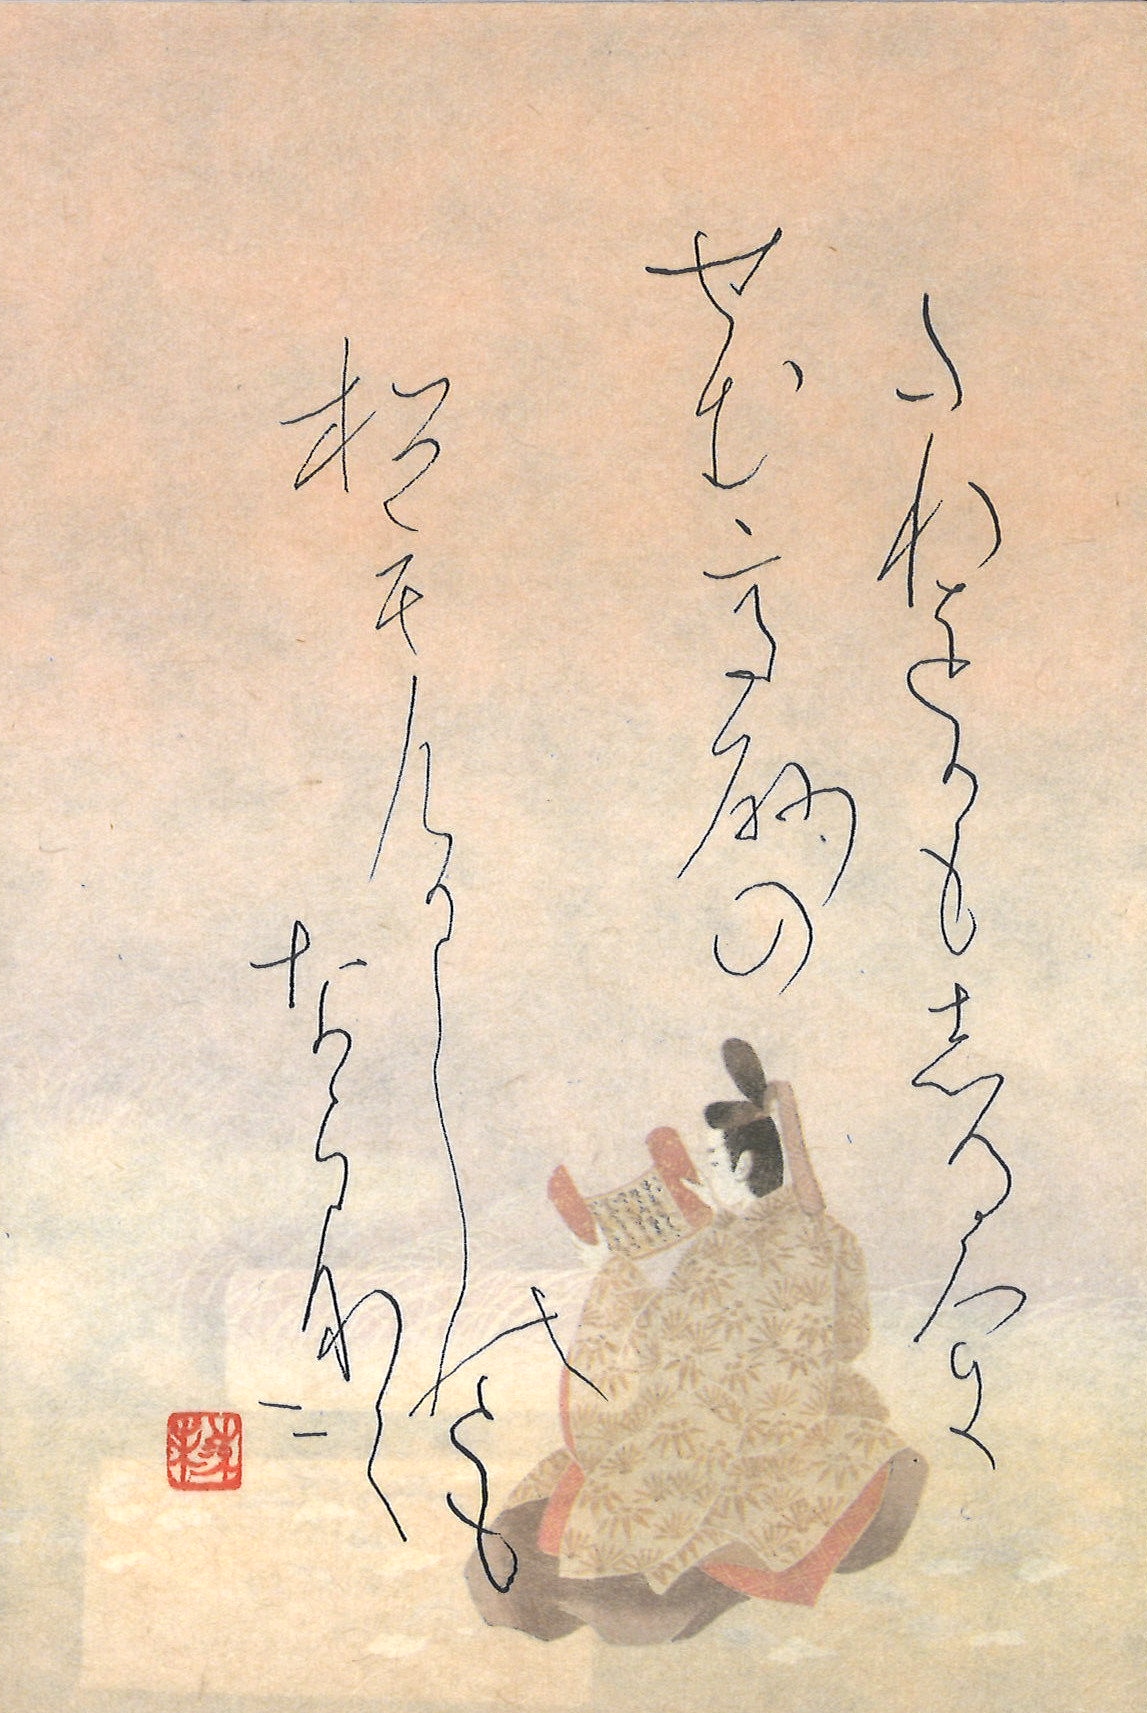 たれをかも志る人に
せむ高砂の
松もむかしのとも
ならなく二